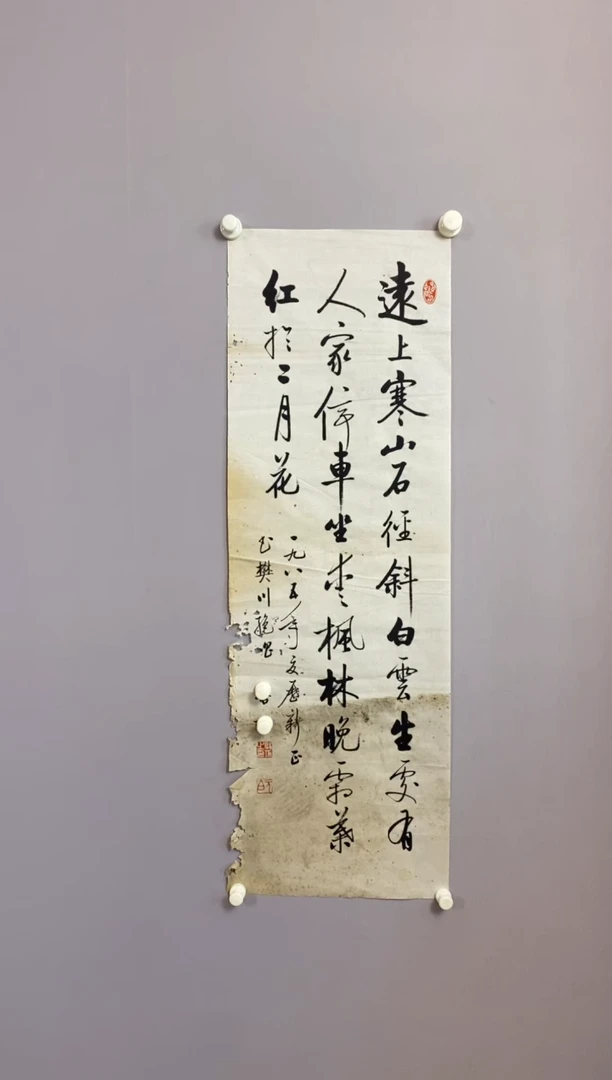 遠上寒山石徑斜白雲生處有
人家停車坐愛楓林晚霜葉
紅於二月花
一九八五年夏历新正
书樊川絶句